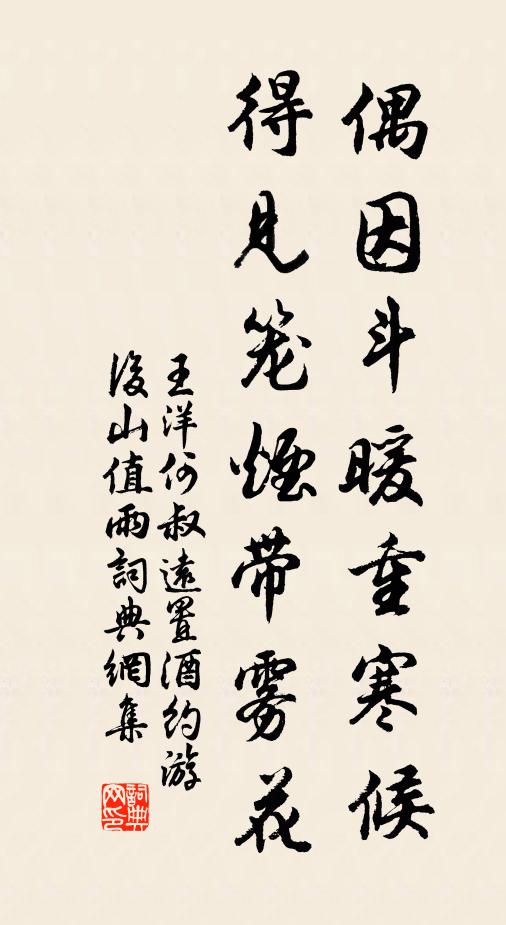 偶因斗暖重寒候
得见笼煙带雾花
王洋何叔遠置酒约游
後山值雨詞典網集
詞典网印